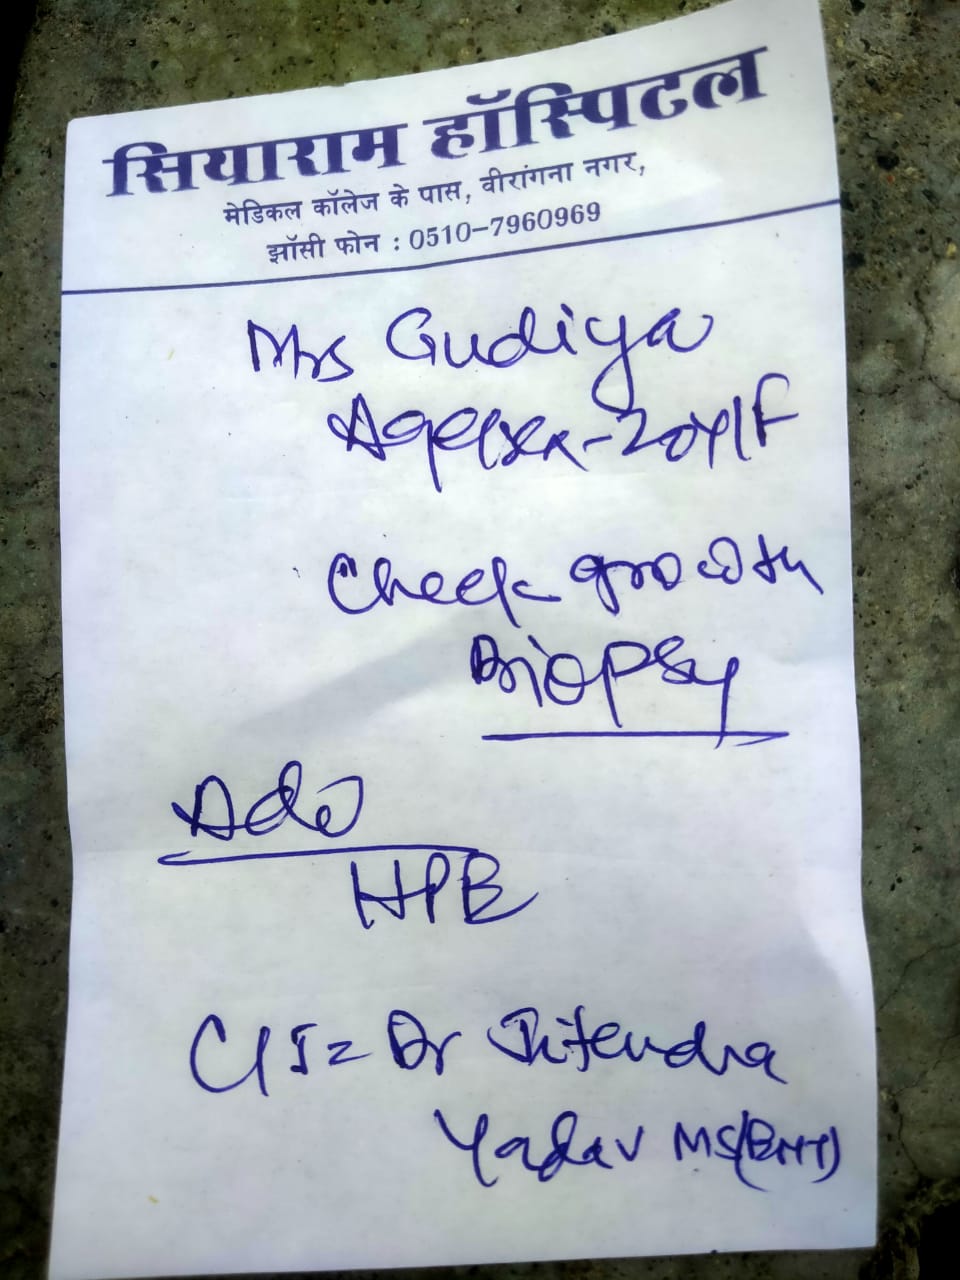 सियाराम हॉस्पिटल
मेडिकल कॉलेज के पास, वीरांगना नगर,
झाॅसी फोन : 0510-7960969
Mrs Gudiya
Age/sex-20y/F
Cheek growth
Biopsy
Adv
HPE
C/I= Dr Jitendra
Yadav MS(ENT)